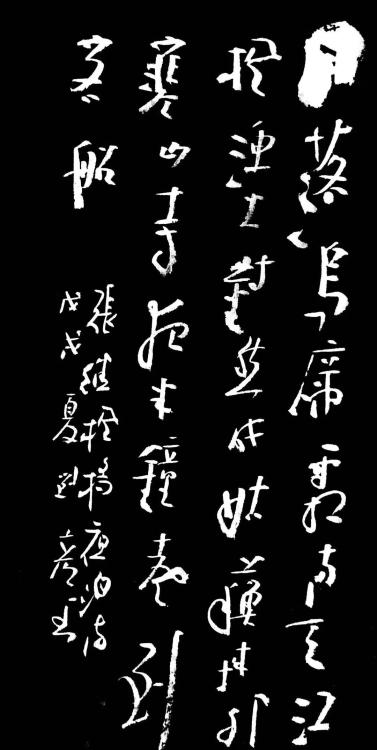 月落烏啼霜滿天江
楓漁火對愁眠姑蘇城外
寒山寺夜半鐘聲到
客船
張繼楓橋夜泊詩
戊戌夏劉彥